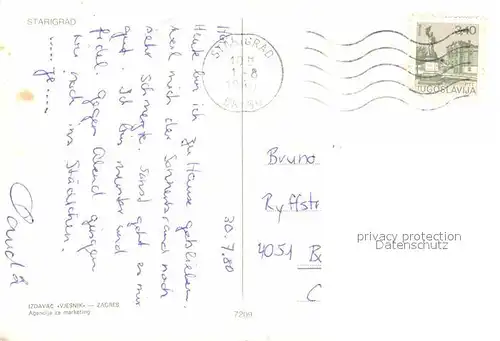 STARIGRAD
Heute bin ich zu Hause geblieben,
weil mich der Sonnenbrand noch
sehr schmerzte. Sonst geht es mir
gut. Ich bin munter und
fidel. Gegen Abend gingen
wir noch ins Städtchen.
30.7.80
STARIGRAD
3,40
JUGOSLAVIJA
Bruno
Ryffstr
4051 B
C
privacy protection
Datenschutz
IZDAVAČ »VJESNIK« — ZAGREB
Agencija za marketing
7209